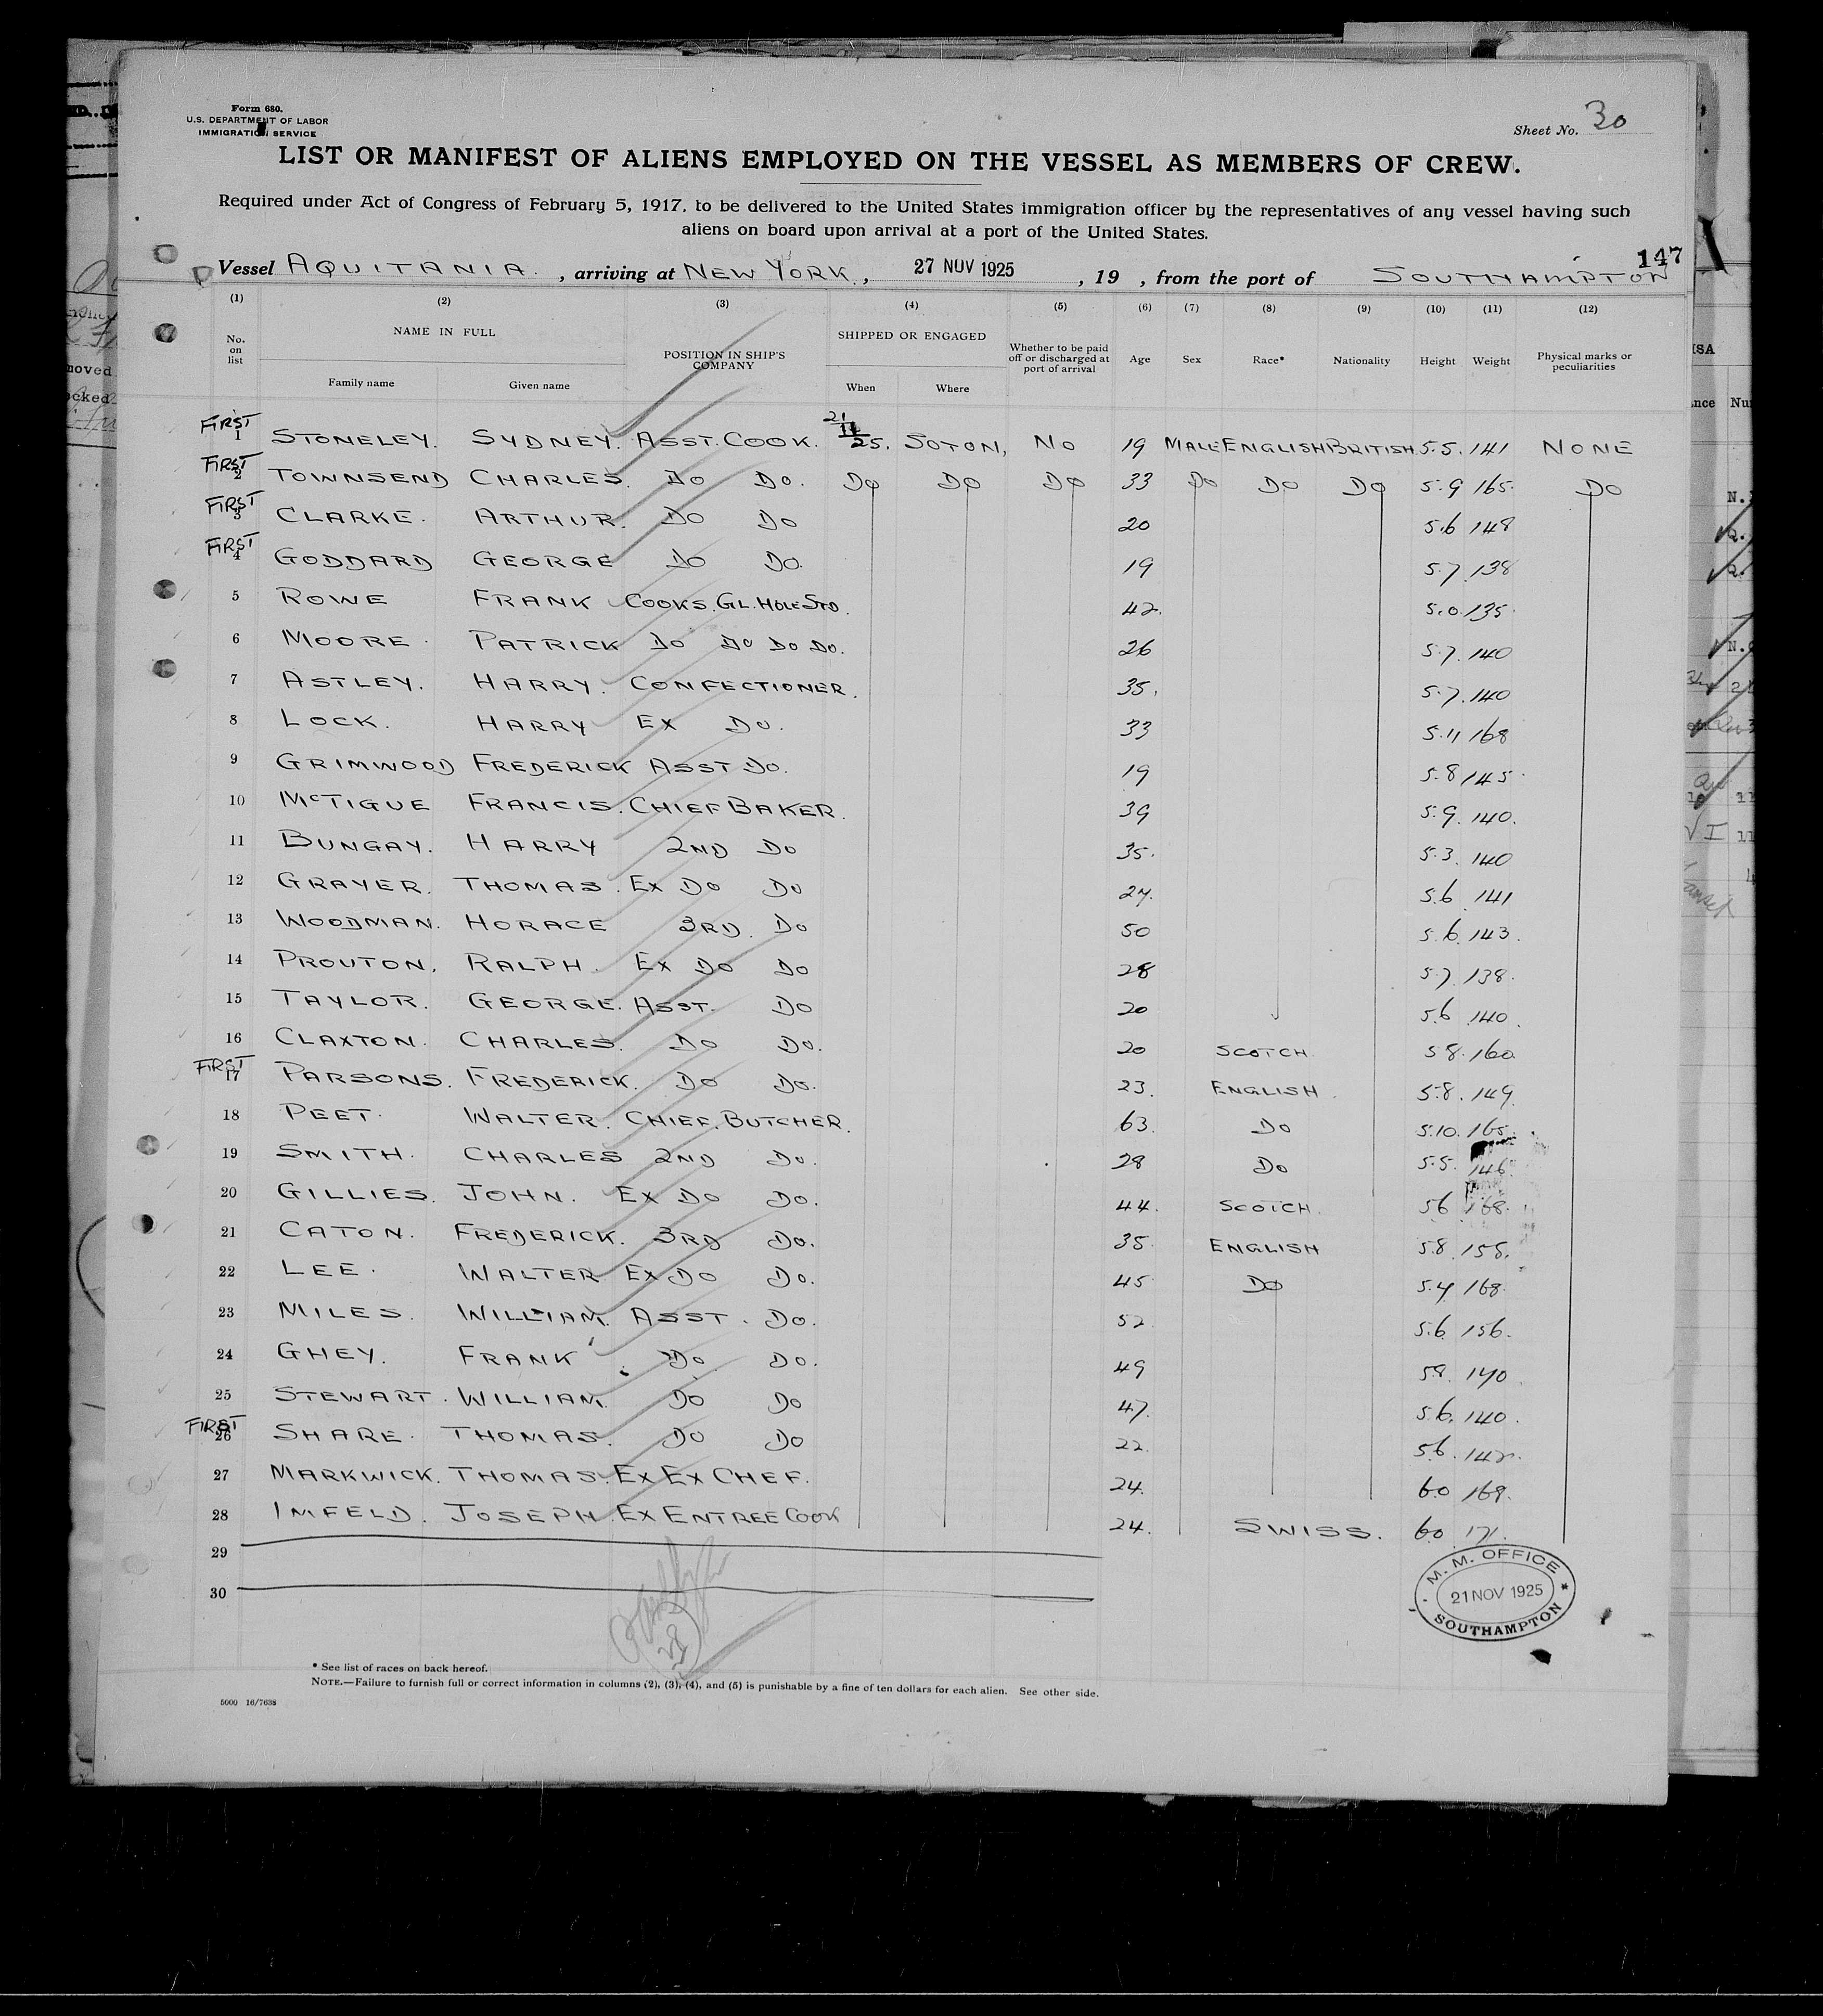 Form 680.
U.S. DEPARTMENT OF LABOR
IMMIGRATION SERVICE
Sheet No. 30
LIST OR MANIFEST OF ALIENS EMPLOYED ON THE VESSEL AS MEMBERS OF CREW.
Required under Act of Congress of February 5, 1917, to be delivered to the United States immigration officer by the representatives of any vessel having such
aliens on board upon arrival at a port of the United States.
147
Vessel AQUITANIA. , arriving at NEW YORK. , 27 NOV 1925 , 19 , from the port of SOUTHAMPTON
(1) (2) (3) (4) (5) (6) (7) (8) (9) (10) (11) (12)
No. on list NAME IN FULL Family name Given name POSITION IN SHIP'S COMPANY SHIPPED OR ENGAGED When Where Whether to be paid off or discharged at port of arrival Age Sex Race* Nationality Height Weight Physical marks or peculiarities
FIRST 1 STONELEY. SYDNEY. ASST. COOK. 21/11/25. SOTON, NO 19 MALE ENGLISH BRITISH. 5.5. 141 NONE
FIRST 2 TOWNSEND CHARLES. DO DO. DO DO DO 33 DO DO DO 5.9 165. DO
FIRST 3 CLARKE. ARTHUR. DO DO 20 5.6 148
FIRST 4 GODDARD GEORGE DO DO. 19 5.7. 138
5 ROWE FRANK COOKS. GL. HOLE STD. 42. 5.0. 135.
6 MOORE. PATRICK DO DO DO DO. 26 5.7. 140
7 ASTLEY. HARRY. CONFECTIONER. 35. 5.7. 140
8 LOCK. HARRY EX DO. 33 5.11 168
9 GRIMWOOD FREDERICK ASST DO. 19 5.8 145.
10 McTIGUE FRANCIS. CHIEF BAKER. 39 5.9. 140.
11 BUNGAY. HARRY 2ND DO 35. 5.3. 140
12 GRAYER. THOMAS. EX DO DO 27. 5.6 141
13 WOODMAN. HORACE 3RD. DO 50 5.6. 143.
14 PROUTON. RALPH. EX DO DO 28 5.7. 138.
15 TAYLOR. GEORGE. ASST. DO 20 5.6 140.
16 CLAXTON. CHARLES. DO DO. 20 SCOTCH. 5 8. 160.
FIRST 17 PARSONS. FREDERICK. DO DO. 23. ENGLISH. 5.8. 149.
18 PEET. WALTER. CHIEF. BUTCHER. 63. DO 5.10. 165.
19 SMITH. CHARLES 2ND DO. 28 DO 5.5. 146
20 GILLIES. JOHN. EX DO DO. 44. SCOTCH. 5 6 168.
21 CATON. FREDERICK. 3RD DO. 35. ENGLISH 5.8. 158.
22 LEE. WALTER EX DO DO. 45. DO 5.4 168.
23 MILES. WILLIAM. ASST. DO. 52. 5.6. 156.
24 GHEY. FRANK DO. DO. 49 5.8.
25 STEWART. WILLIAM. DO DO 47. 5.6. 140.
FIRST 26 SHARE. THOMAS. DO DO 22. 5 6. 142.
27 MARKWICK. THOMAS. EX EX CHEF. 24. 6.0 169.
28 IMFELD. JOSEPH. EX ENTREE COOK 24. SWISS. 6.0 171.
29
30
28
M. M. OFFICE
21 NOV 1925
SOUTHAMPTON
* See list of races on back hereof.
NOTE.—Failure to furnish full or correct information in columns (2), (3), (4), and (5) is punishable by a fine of ten dollars for each alien. See other side.
5000 16/7638